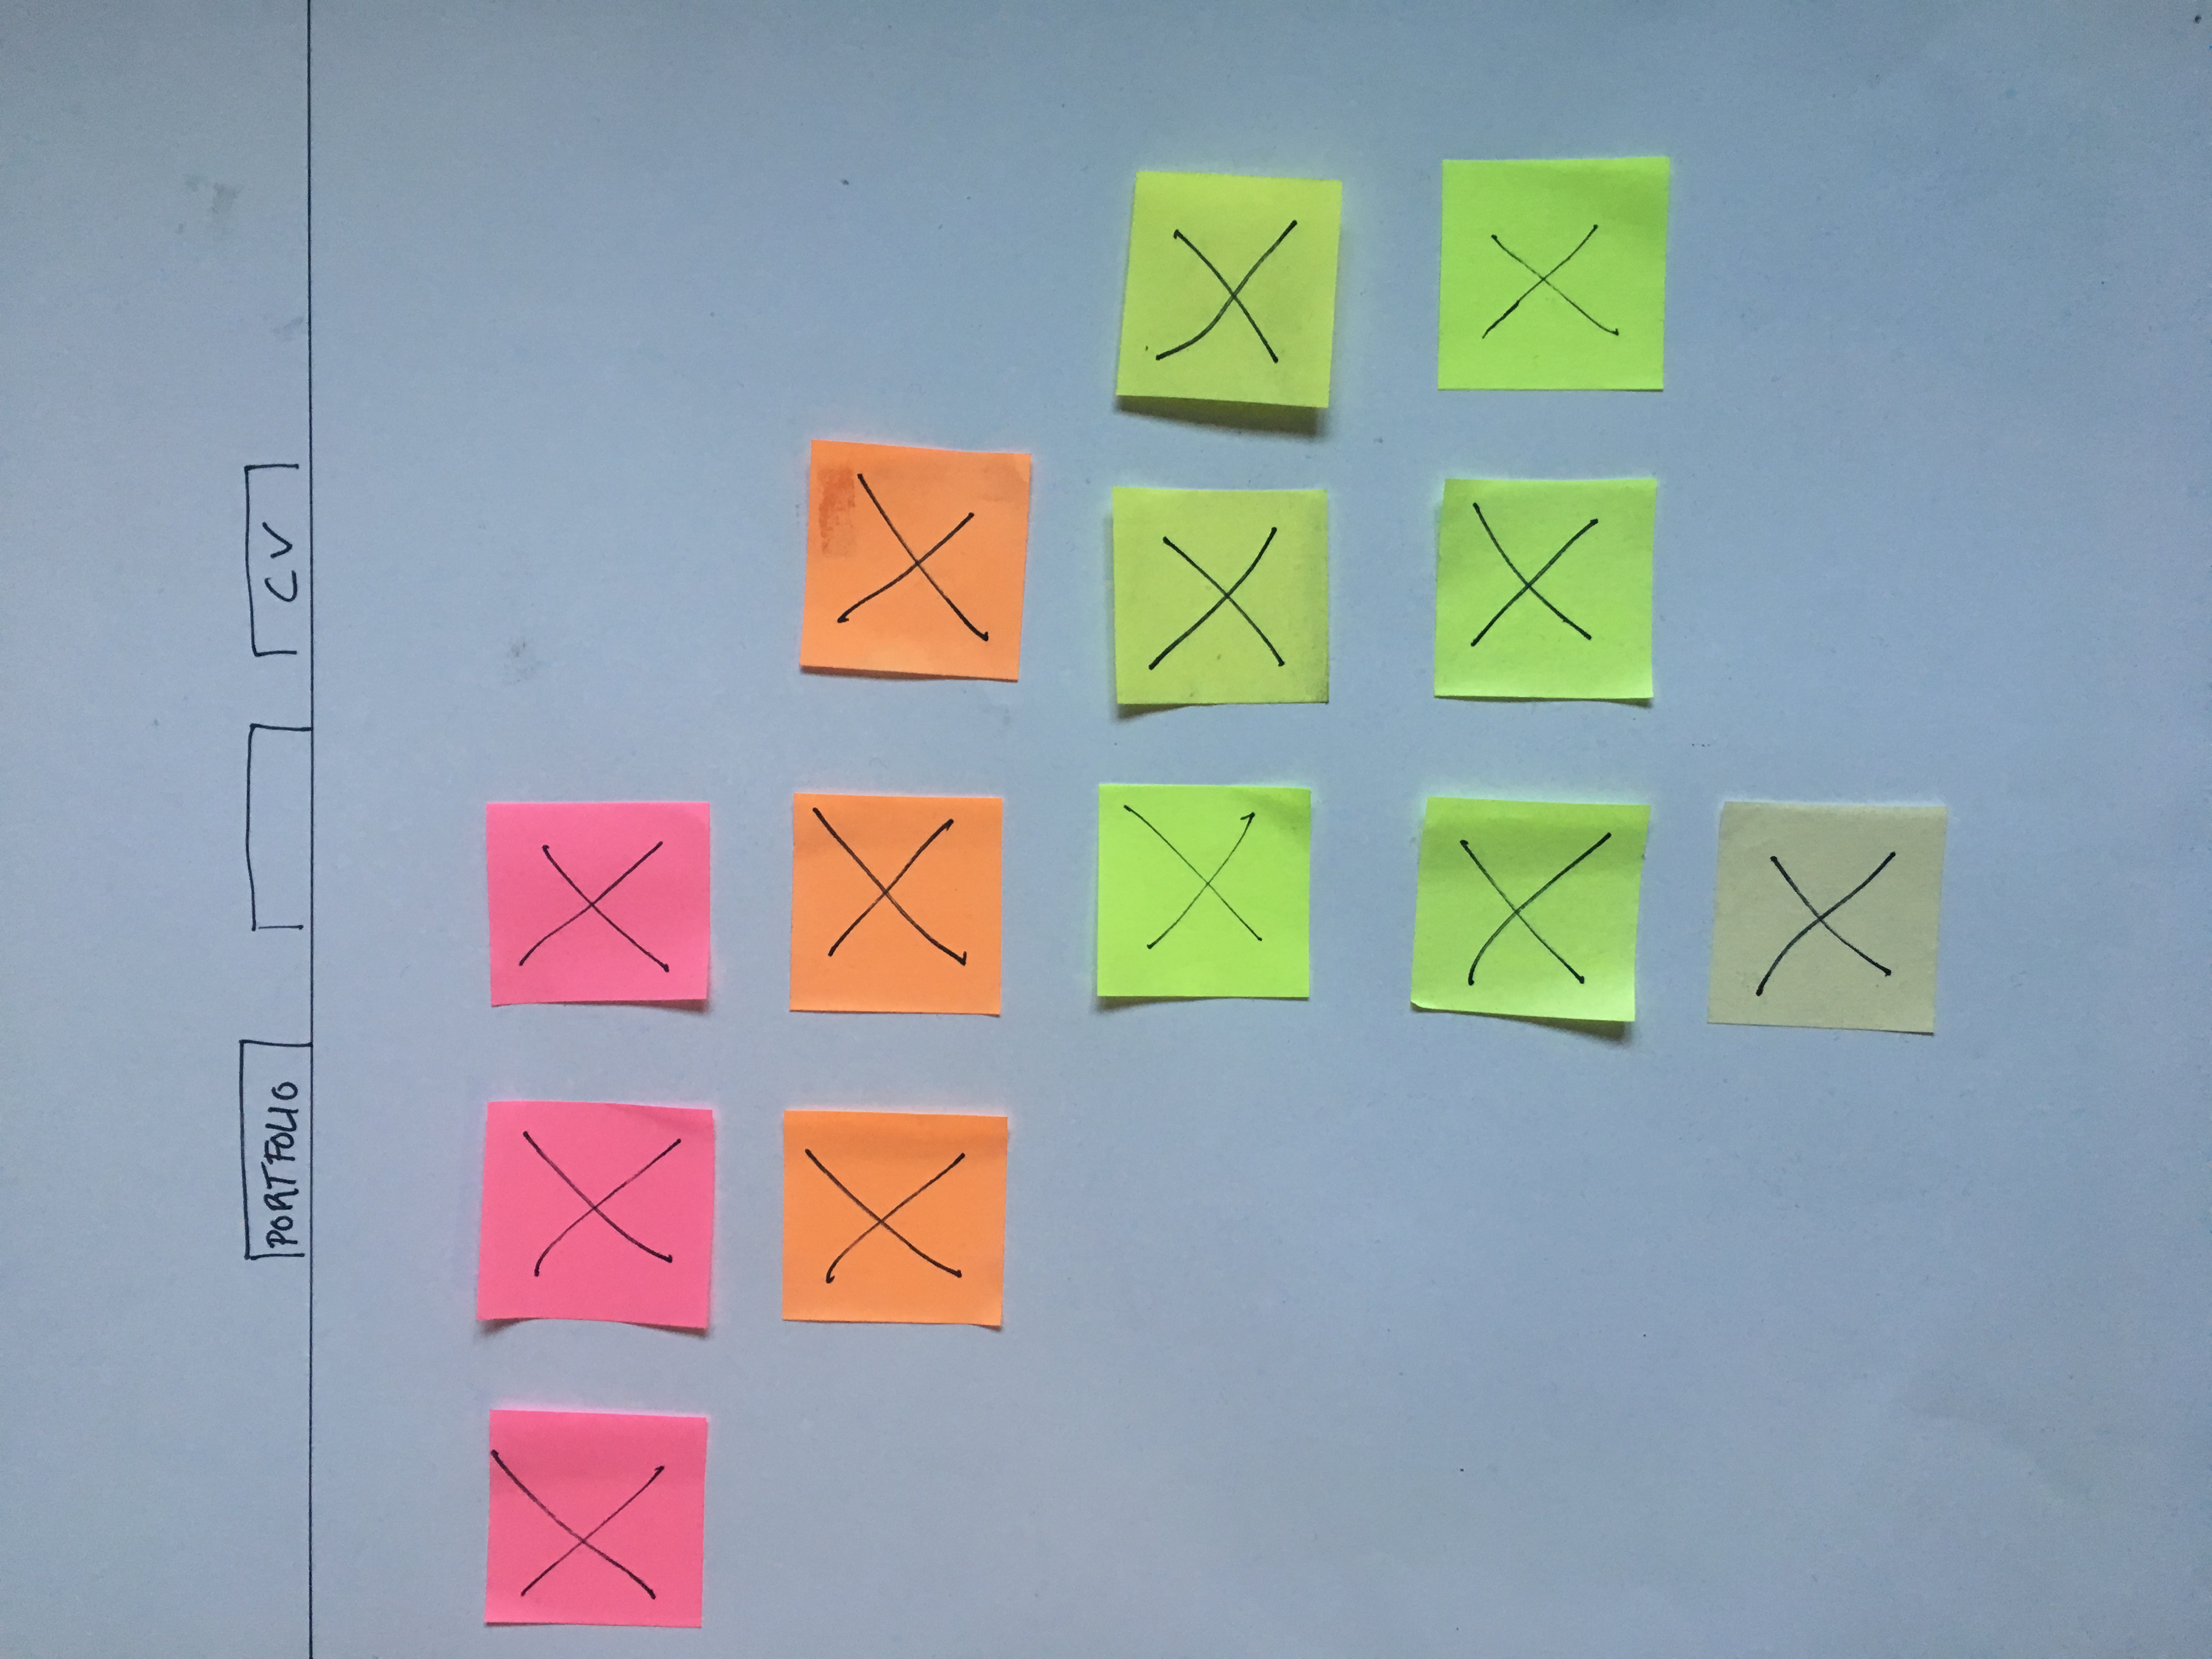 PORTFOLIO CV
X X X
X X X
X X X
X X X
X